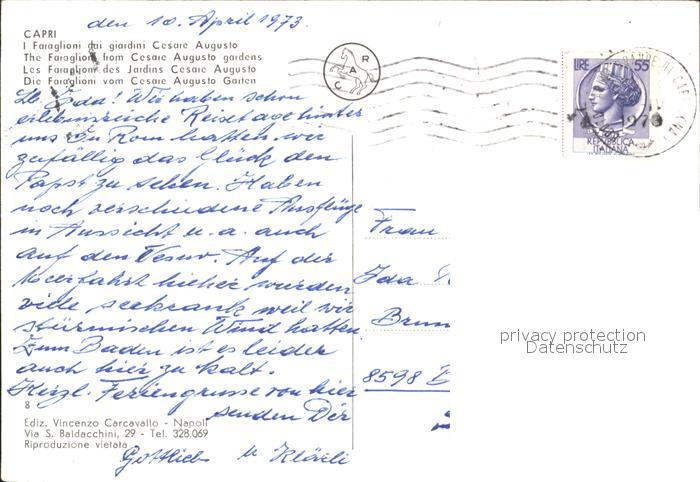 den 10. April 1973.
CAPRI
I Faraglioni dai giardini Cesare Augusto
The Faraglioni from Cesare Augusto gardens
Les Faraglioni des Jardins Cesare Augusto
Die Faraglioni vom Cesare Augusto Garten
Lb. Ida! Wir haben schon
erlebnisreiche Reisetage hinter
uns. In Rom hatten wir
zufällig das Glück den
Papst zu sehen. Haben
noch verschiedene Ausflüge
in Aussicht u. a. auch
auf den Vesuv. Auf der
Meerfahrt hieher wurden
viele seekrank weil wir
stürmischen Wind hatten.
Zum Baden ist es leider
auch hier zu kalt.
Herzl. Feriengrüsse von hier
senden Dir
Gottlieb u Klärli
8
Ediz. Vincenzo Carcavallo - Napoli
Via S. Baldacchini, 29 - Tel. 328.069
Riproduzione vietata
R
A
C
LIRE 55
REPUBBLICA
ITALIANA
Frau
Ida
Brun
8598 B
privacy protection
Datenschutz